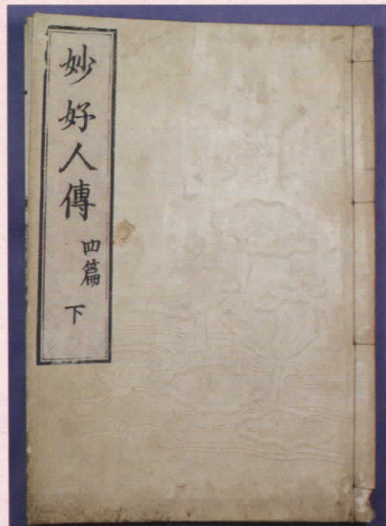 妙好人傳 四篇 下